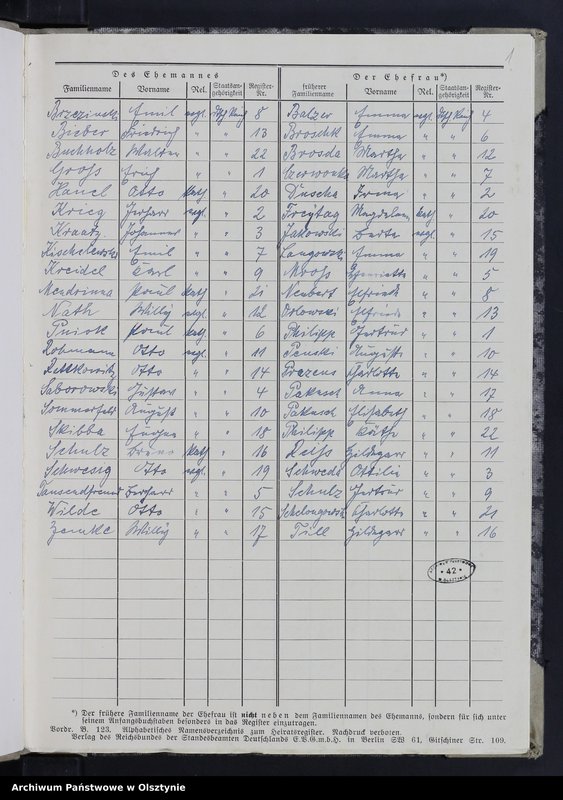 1
Des Ehemannes Der Ehefrau*)
Familienname Vorname Rel. Staatsan-gehörigkeit Register-Nr. früherer Familienname Vorname Rel. Staatsan-gehörigkeit Register-Nr.
Brzezinski Emil evgl. 8 Balzer Emma evgl. 4
Bieber Friedrich " " 13 Broschk Emma " " 6
Buchholz Walter " " 22 Brosda Martha " " 12
Groß Erich " " 1 Czerwonka Martha " " 7
Hanel Otto kath " 20 Duscha Irma " " 2
Krieg Gerhard evgl. " 2 Freytag Magdalena kath " 20
Kraatz Johannes " " 3 Jakowski Berta evgl " 15
Emil " " 7 Langowski Emma " " 19
Kreidel Karl " " 9 Mroß Henriette " " 5
Mendrinna Paul kath " 21 Neubert Elfriede " " 8
Nath Willy evgl " 12 Orlowski Elfriede " " 13
Pniok Paul kath " 6 Philipp Gertrud " " 1
Rohmann Otto evgl. " 11 Penski Auguste " " 10
Rettkowitz Otto " " 14 Prazeus Charlotte " " 14
Saborowski Gustav " " 4 Pakusch Anna " " 17
Sommerfeld August " " 10 Pakusch Elisabeth " " 18
Skibba " " 18 Philipp Käthe " " 22
Schulz Bruno kath " 16 Reiß Hildegard " " 11
Schwessig Otto evgl. " 19 Schwede Ottilie " " 3
Tausendfreund Gerhard " " 5 Schulz Gertrud " " 9
Wilde Otto " " 15 Charlotte " " 21
Zemke Willy " " 17 Till Hildegard " " 16
42
*) Der frühere Familienname der Ehefrau ist nicht neben dem Familiennamen des Ehemanns, sondern für sich unter
seinem Anfangsbuchstaben besonders in das Register einzutragen.
Vordr. B. 123. Alphabetisches Namensverzeichnis zum Heiratsregister. Nachdruck verboten.
Verlag des Reichsbundes der Standesbeamten Deutschlands E.V.G.m.b.H. in Berlin SW 61, Gitschiner Str. 109.
Archiwum Państwowe w Olsztynie